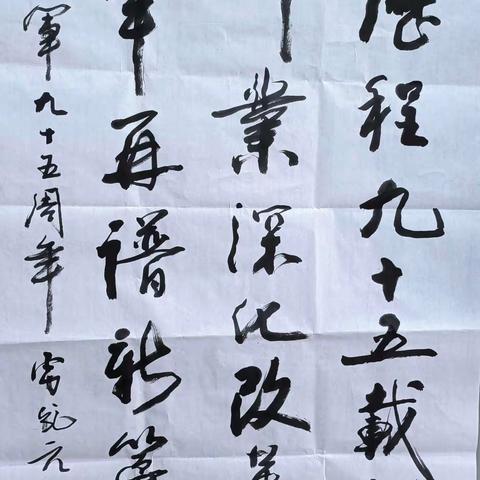 程九十五載
業深化改革
再譜新篇
軍九十五周年